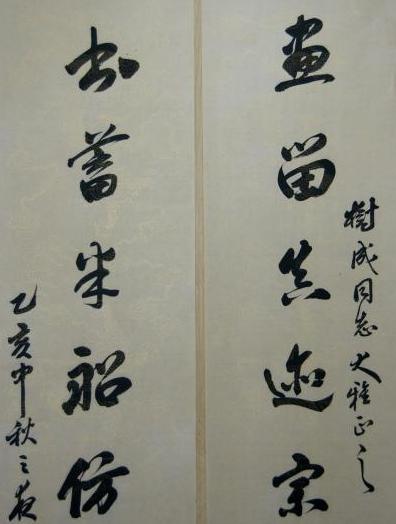 樹成同志大雅正之
畫留真迹宗
书蓄米船仿
乙亥中秋之夜